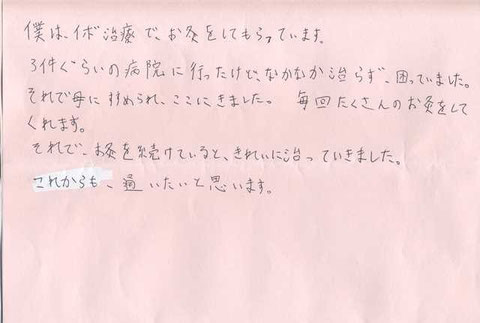 僕は、イボ治療で、お灸をしてもらっています。
3件ぐらいの病院に行ったけど、なかなか治らず、困っていました。
それで母にすすめられ、ここにきました。 毎回たくさんのお灸をして
くれます。
それで、お灸を続けていると、きれいに治っていきました。
これからも、通いたいと思います。